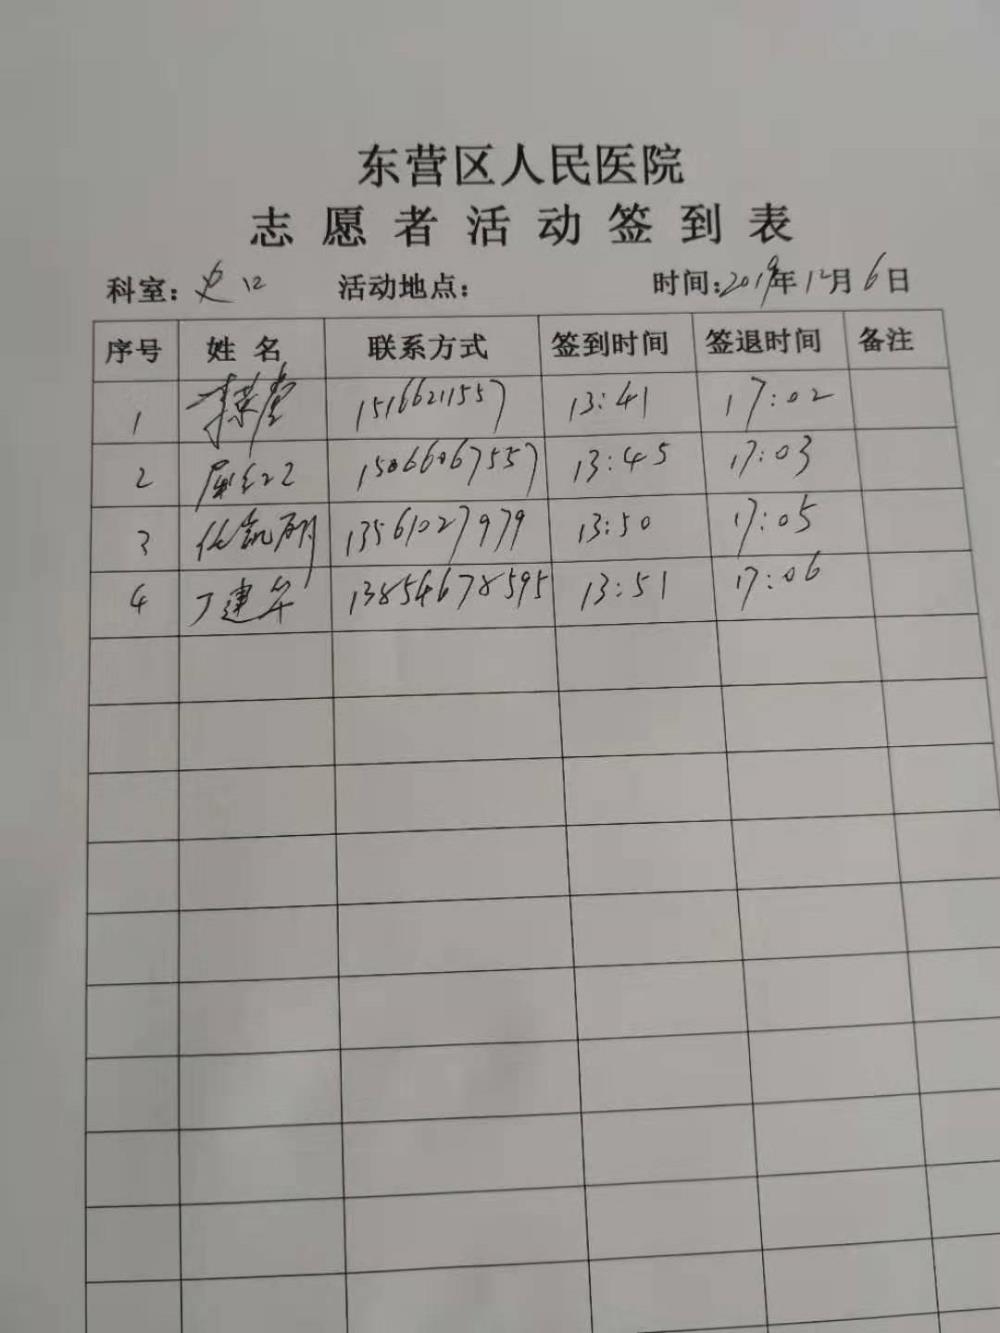 东营区人民医院
志愿者活动签到表
科室: 史口 活动地点: 时间:2019年12月6日
序号 姓名 联系方式 签到时间 签退时间 备注
1 15166211557 13:41 17:02
2 15066067557 13:45 17:03
3 13561027979 13:50 17:05
4 丁建华 13854678595 13:51 17:06